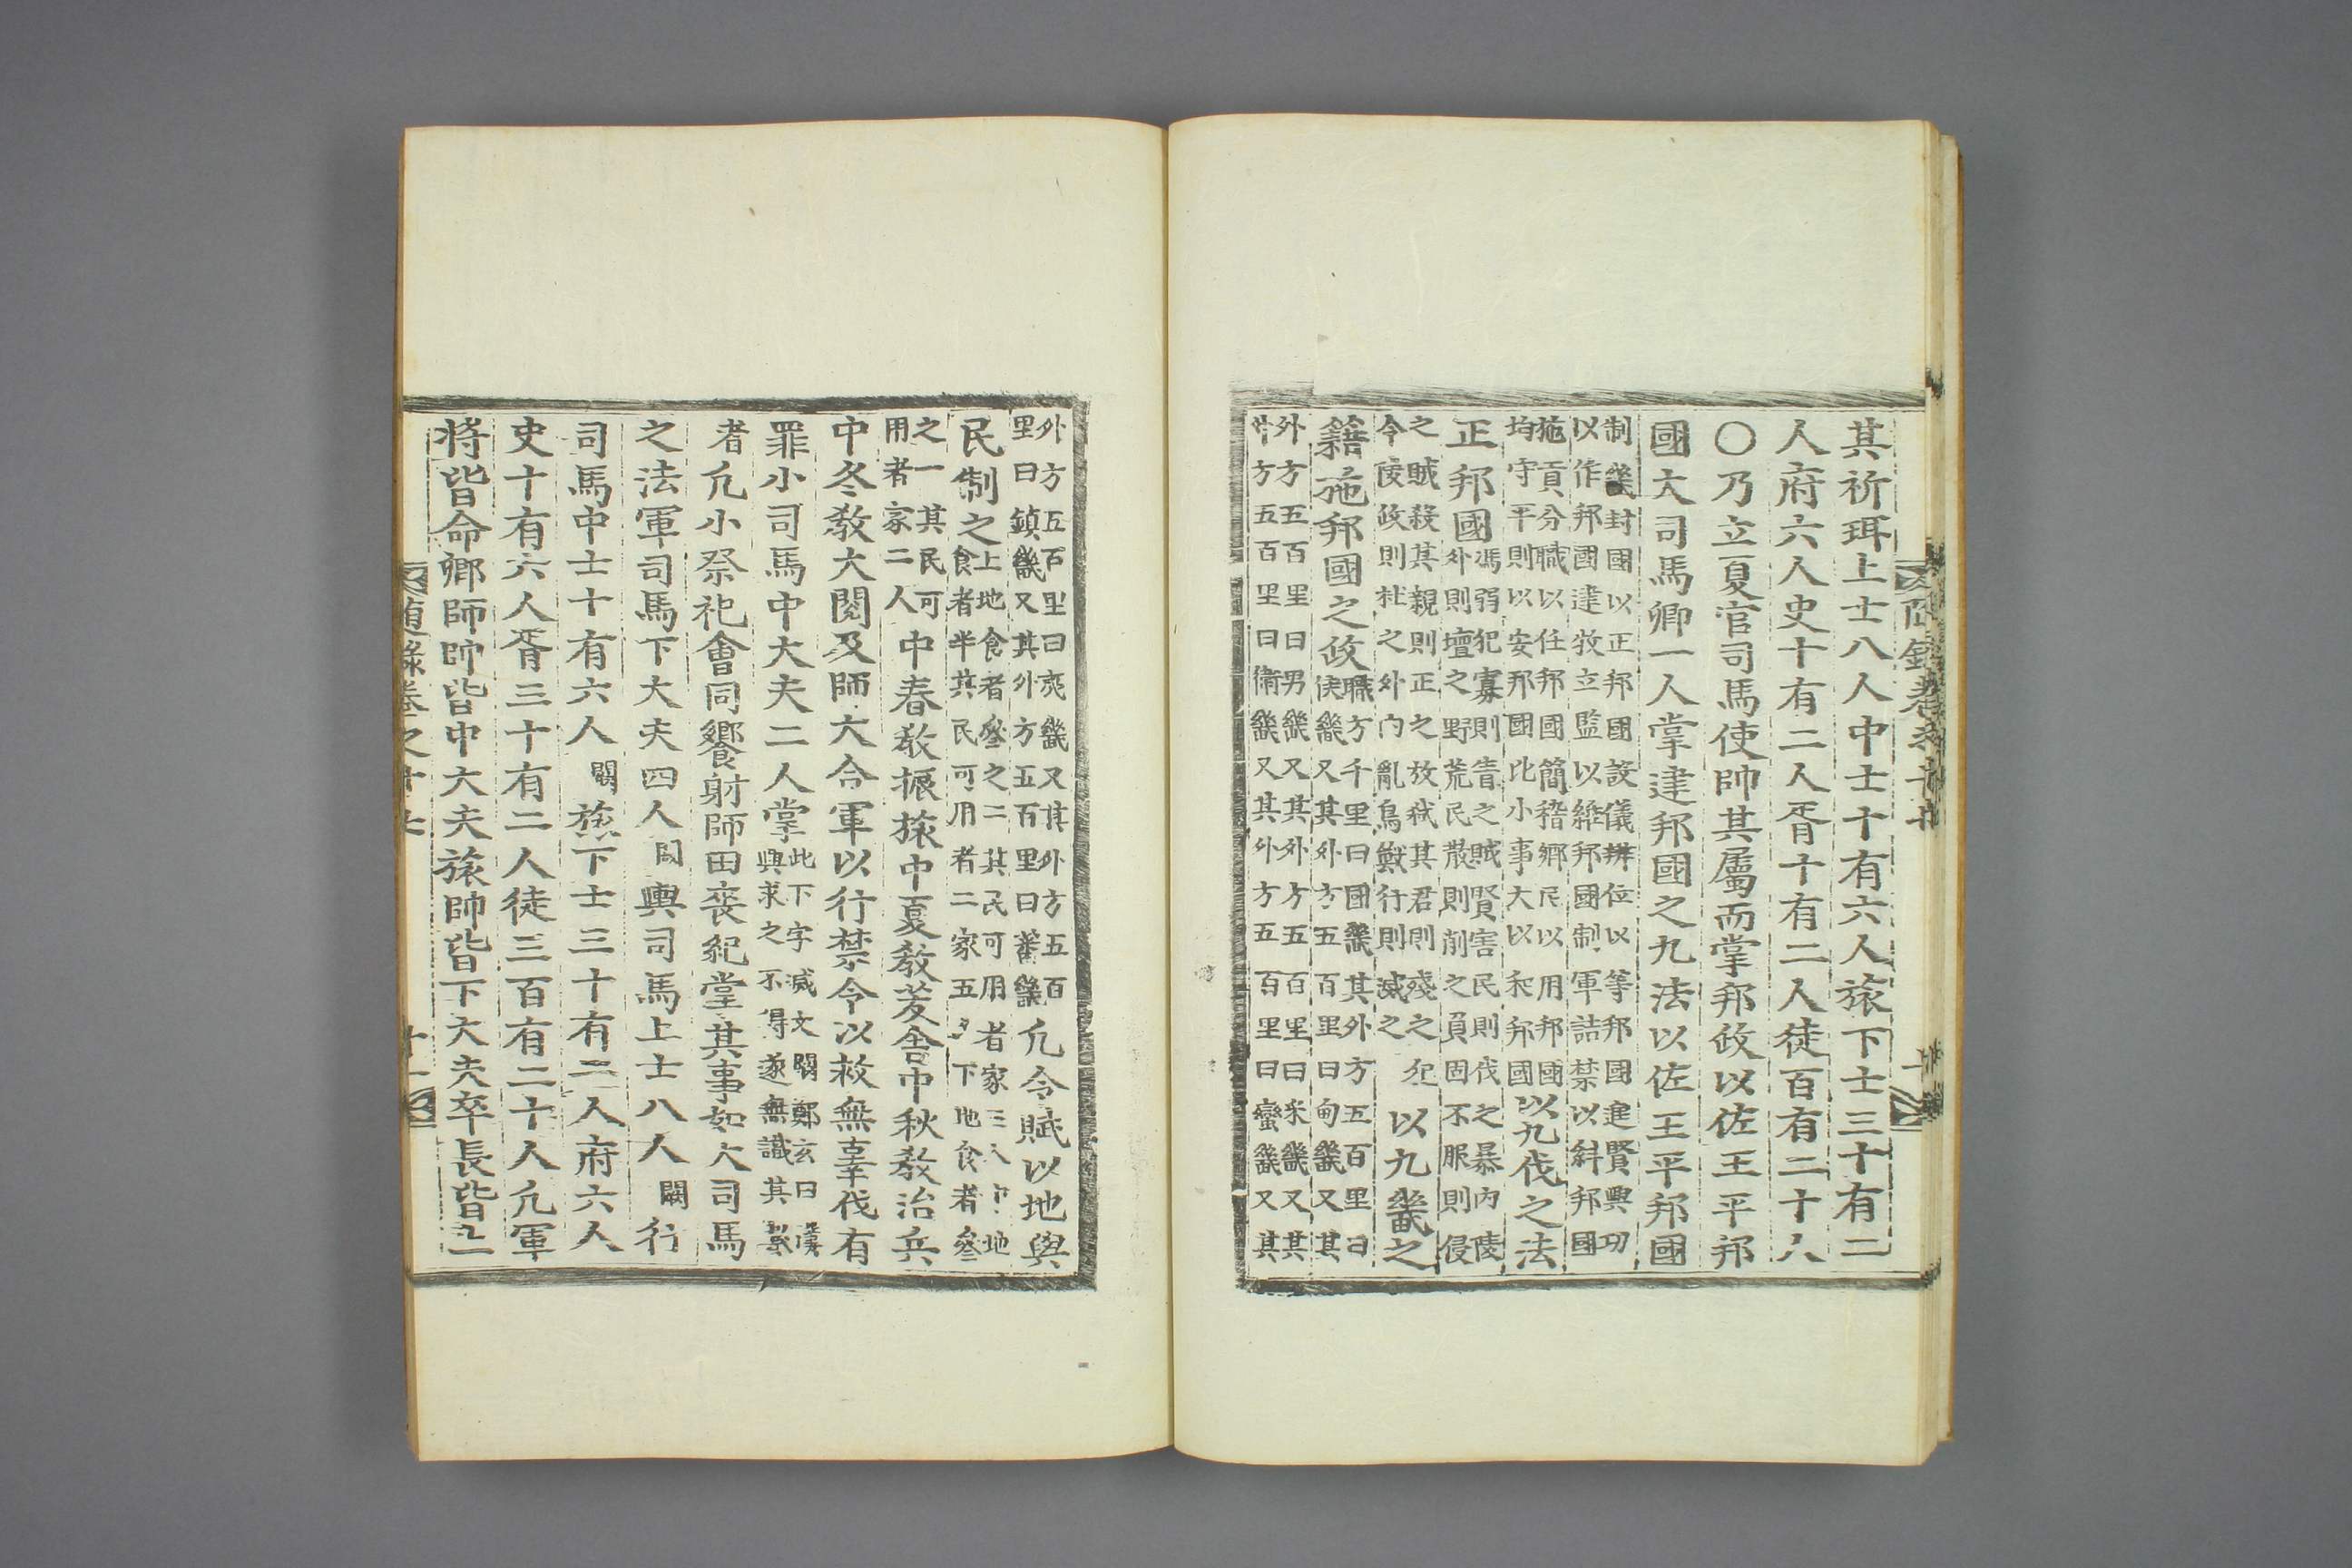 其祈珥上士八人中士十有六人旅下士三十有二
人府六人史十有二人胥十有二人徒百有二十人
○乃立夏官司馬使帥其屬而掌邦政以佐王平邦
國大司馬卿一人掌建邦國之九法以佐王平邦國
制畿封國以正邦國設儀辨位以等邦國進賢興功
以作邦國建牧立監以維邦國制軍詰禁以糾邦國
施貢分職以任邦國簡稽鄉民以用邦國
均守平則以安邦國比小事大以和邦國
以九伐之法
正邦國
馮弱犯寡則眚之賊賢害民則伐之暴內陵
外則壇之野荒民散則削之負固不服則侵
之賊殺其親則正之放弒其君則殘之犯
令陵政則杜之外內亂鳥獸行則滅之
以九畿之
籍施邦國之政
職方千里曰國畿其外方五百里曰
侯畿又其外方五百里曰甸畿又其
外方五百里曰男畿又其外方五百里曰采畿又其
外方五百里曰衛畿又其外方五百里曰蠻畿又其
外方五百里曰夷畿又其外方五百
里曰鎮畿又其外方五百里曰蕃畿
凡令賦以地與
民制之
上地食者叄之二其民可用者家三人中地
食者半其民可用者二家五 下地食者叄
之一其民可
用者家二人
中春敎振旅中夏敎茇舍中秋敎治兵
中冬敎大閱及師大合軍以行禁令以救無辜伐有
罪小司馬中大夫二人掌
此下字滅文闕鄭玄曰漢
興求之不得遂無識其
者凡小祭祀會同饗射師田喪紀掌其事如大司馬
之法軍司馬下大夫四人
闕
輿司馬上士八人
闕
行
司馬中士十有六人
闕
旅下士三十有二人府六人
史十有六人胥三十有二人徒三百有二十人凡軍
將皆命卿師帥皆中大夫旅帥皆下大夫卒長皆上
隨錄卷之十七
十一